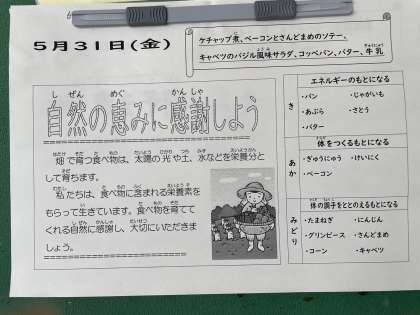 5月31日(金)
ケチャップ煮、ベーコンとさんどまめのソテー、
キャベツのバジル風味サラダ、コッペパン、バター、牛乳
自然の恵みに感謝しよう
畑で育つ食べ物は、太陽の光や土、水などを栄養分と
して育ちます。
私たちは、食べ物に含まれる栄養素を
もらって生きています。食べ物を育てて
くれる自然に感謝し、大切にいただきま
しょう。
き
エネルギーのもとになる
・パン ・じゃがいも
・あぶら ・さとう
・バター
あか
体をつくるもとになる
・ぎゅうにゅう ・けいにく
・ベーコン
みどり
体の調子をととのえるもとになる
・たまねぎ ・にんじん
・グリンピース ・さんどまめ
・コーン ・キャベツ